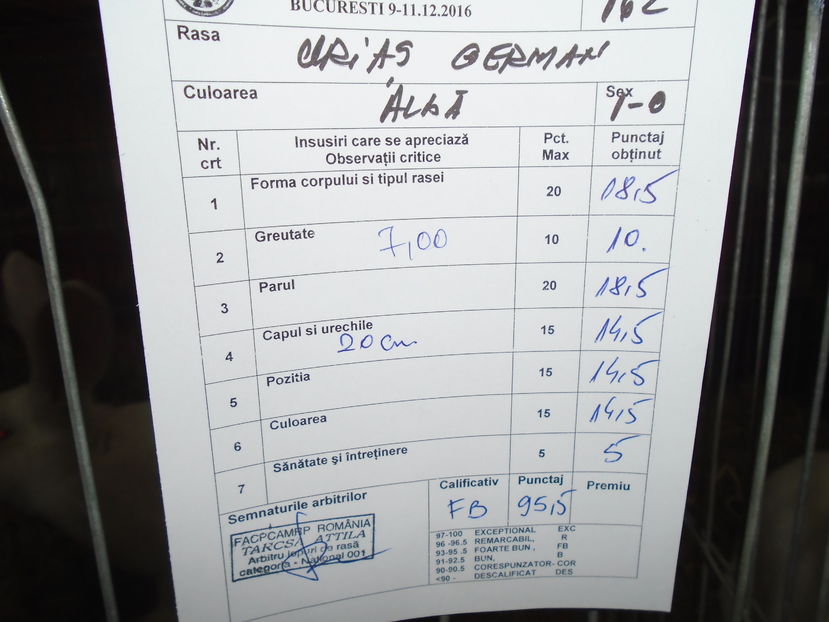 BUCURESTI 9-11.12.2016
162
Rasa
URIAS GERMAN
Culoarea
ALBĂ
Sex
1-0
Nr. crt
Insusiri care se apreciază
Observații critice
Pct. Max
Punctaj obținut
1 Forma corpului si tipul rasei 20 18,5
2 Greutate 7,00 10 10.
3 Parul 20 18,5
4 Capul si urechile 20 cm 15 14,5
5 Pozitia 15 14,5
6 Culoarea 15 14,5
7 Sănătate şi întreținere 5 5
Semnaturile arbitrilor
Calificativ
FB
Punctaj
95,5
Premiu
FACPCAMRP ROMÂNIA
TARCSA ATTILA
Arbitru Iepuri de rasă
categoria - National 001
97-100 EXCEPTIONAL EXC
96 -96.5 REMARCABIL, R
93-95 .5 FOARTE BUN , FB
91-92.5 BUN, B
90-90.5 CORESPUNZATOR- COR
<90 - DESCALIFICAT DES